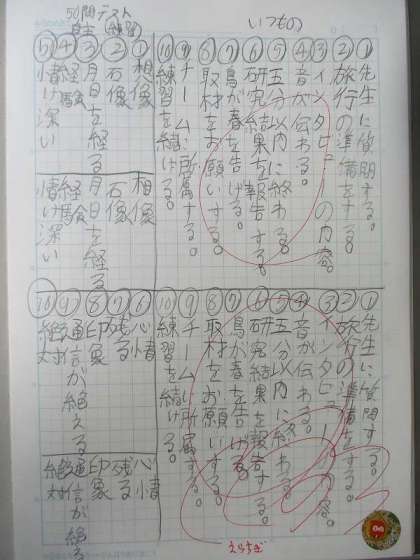 50問テスト
自主（練習）
いつもの
①先生に質問する。
②旅行の準備をする。
③インタビューの内容。
④音が伝わる。
⑤五分以内に終わる。
⑥研究結果を報告する。
⑦鳥が春を告げる。
⑧取材をお願いする。
⑨チームに所属する。
⑩練習を続ける。
①想像
②石像
③月日を経る
④経験
⑤情け深い
想像
石像
月日を経る
経験
情け深い
①先生に質問する。
②旅行の準備をする。
③インタビューの内容。
④音が伝わる。
⑤五分以内に終わる。
⑥研究結果を報告する。
⑦鳥が春を告げる。
⑧取材をお願いする。
⑨チームに所属する。
⑩練習を続ける。
⑥心情
⑦残る
⑧印象
⑨通信が絶える
⑩絶対
心情
残る
印象
通信が絶える
絶対
えらすぎ